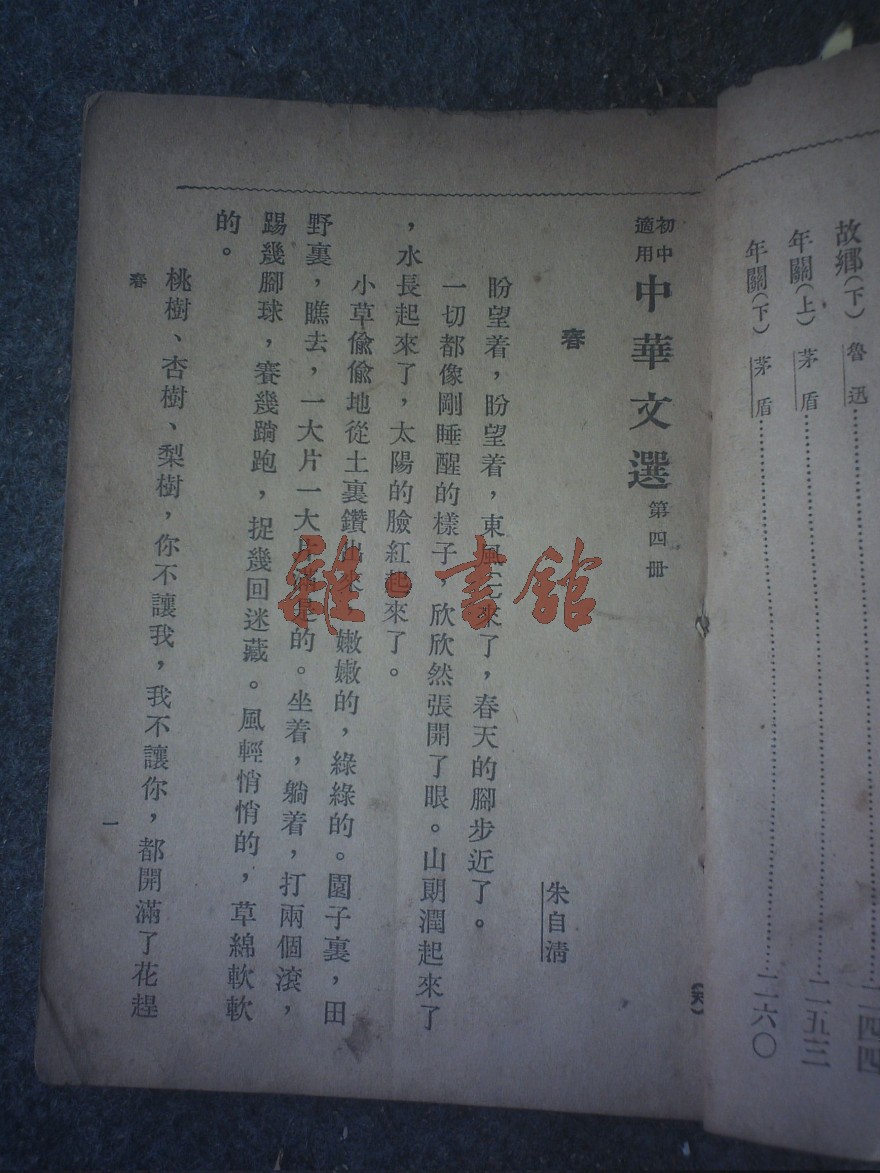 故鄉(下) 魯迅……二四四
年關(上) 茅盾……二五三
年關(下) 茅盾……二六〇
初中適用 中華文選 第四册
春 朱自清
盼望着,盼望着,東風來了,春天的腳步近了。
一切都像剛睡醒的樣子,欣欣然張開了眼。山朗潤起來了
,水長起來了,太陽的臉紅起來了。
小草偷偷地從土裏鑽出來,嫩嫩的,綠綠的。園子裏,田
野裏,瞧去,一大片一大片滿是的。坐着,躺着,打兩個滾,
踢幾腳球,賽幾蹚跑,捉幾回迷藏。風輕悄悄的,草綿軟軟
的。
桃樹、杏樹、梨樹,你不讓我,我不讓你,都開滿了花趕
春
一
雜·書館